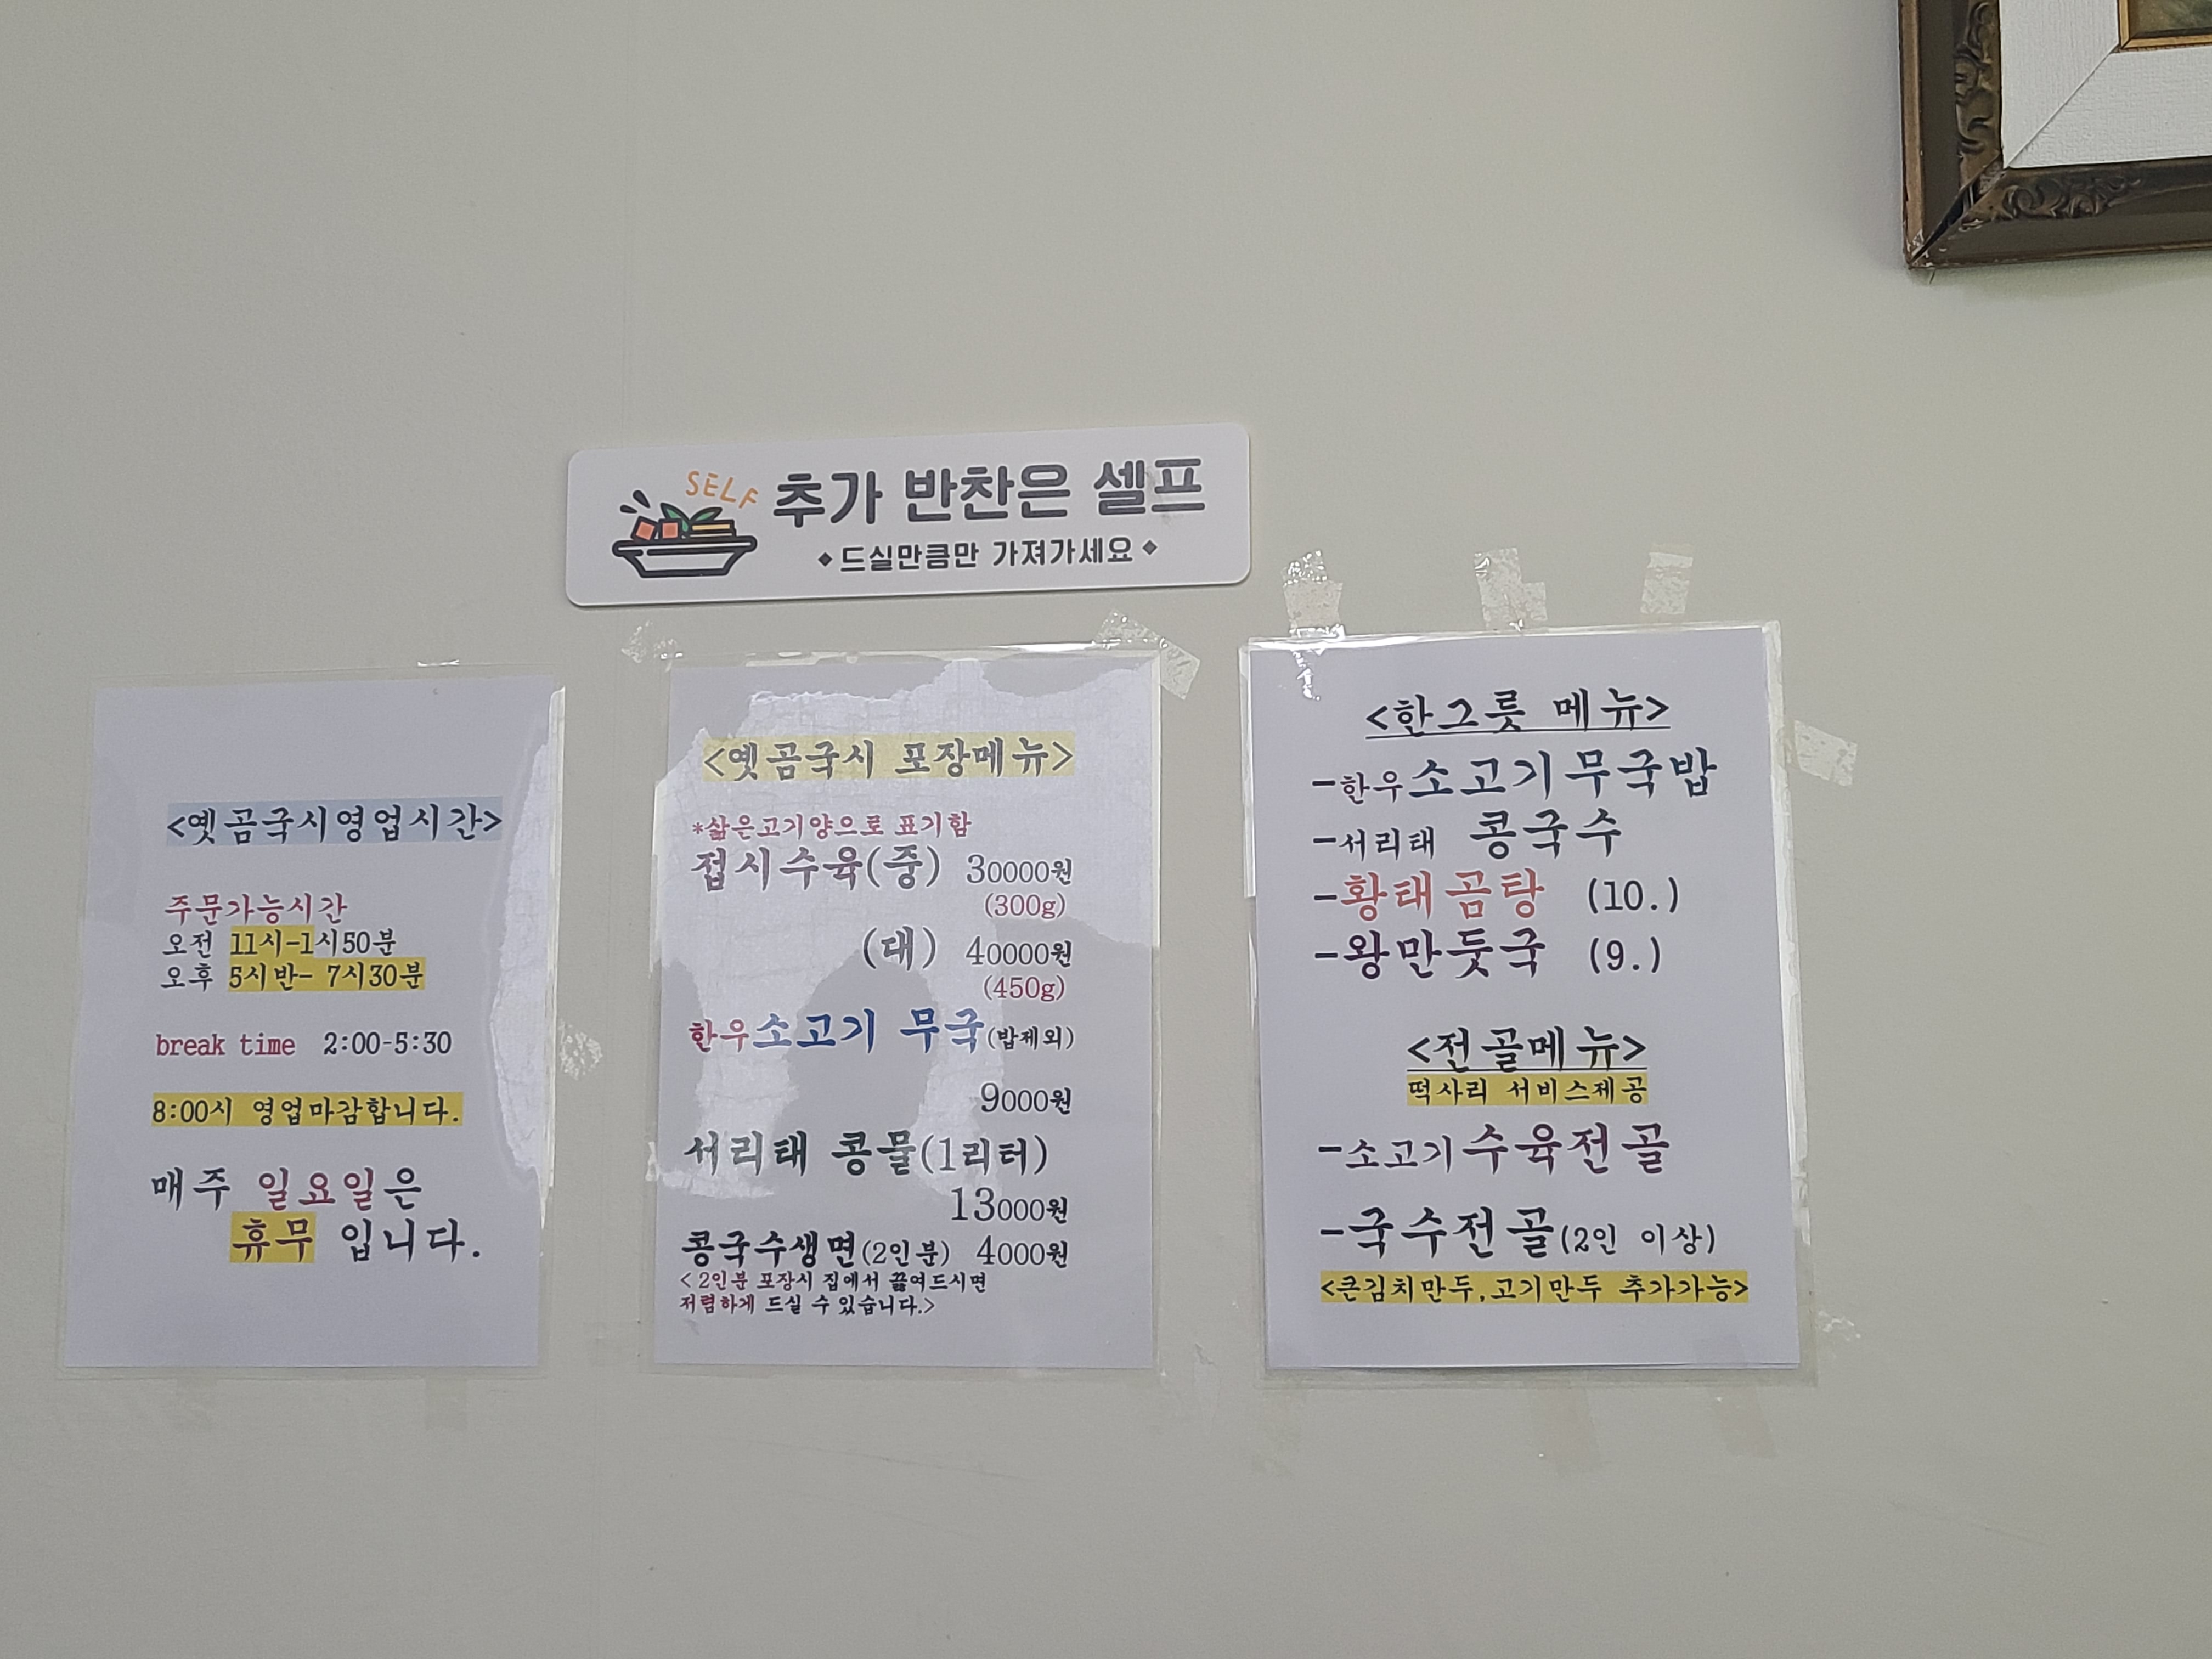 SELF
추가 반찬은 셀프
드실만큼만 가져가세요
<옛곰국시영업시간>
주문가능시간
오전 11시-1시50분
오후 5시반- 7시30분
break time 2:00-5:30
8:00시 영업마감합니다.
매주 일요일은
휴무 입니다.
<옛곰국시 포장메뉴>
*삶은고기양으로 표기함
접시수육(중) 30000원
(300g)
(대) 40000원
(450g)
한우소고기 무국(밥제외)
9000원
서리태 콩물(1리터)
13000원
콩국수생면(2인분) 4000원
< 2인분 포장시 집에서 끓여드시면
저렴하게 드실 수 있습니다.>
<한그릇 메뉴>
-한우소고기무국밥
-서리태 콩국수
-황태곰탕 (10.)
-왕만둣국 (9.)
<전골메뉴>
떡사리 서비스제공
-소고기수육전골
-국수전골(2인 이상)
<큰김치만두,고기만두 추가가능>